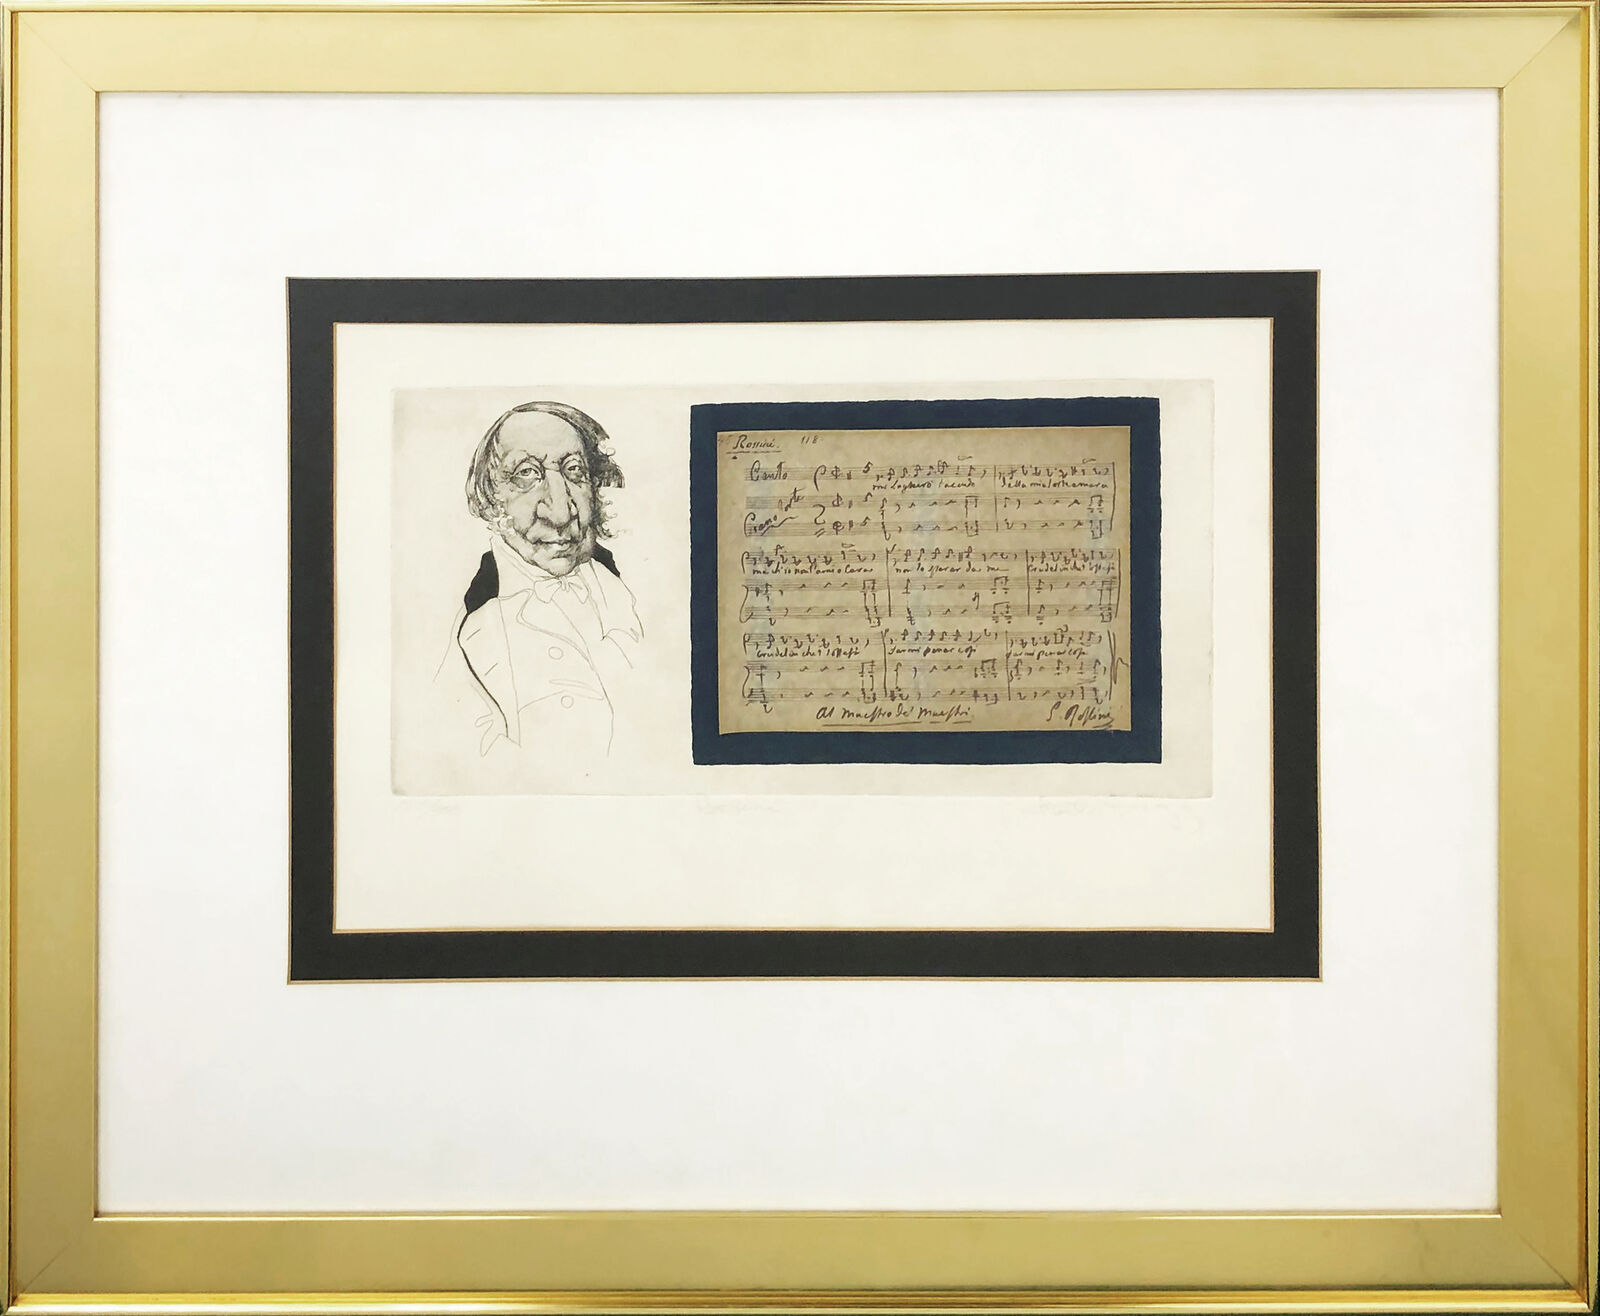 Rossini. 118
Canto
mi lagnerò tacendo della mia sorte amara
forte
Piano
ma ch'io non t'ami o Cara non lo sperar da me Crudel in che t'offesi
Crudel in che t'offesi farmi penar così farmi penar così
Al Maestro de' Maestri G. Rossini
Rossini